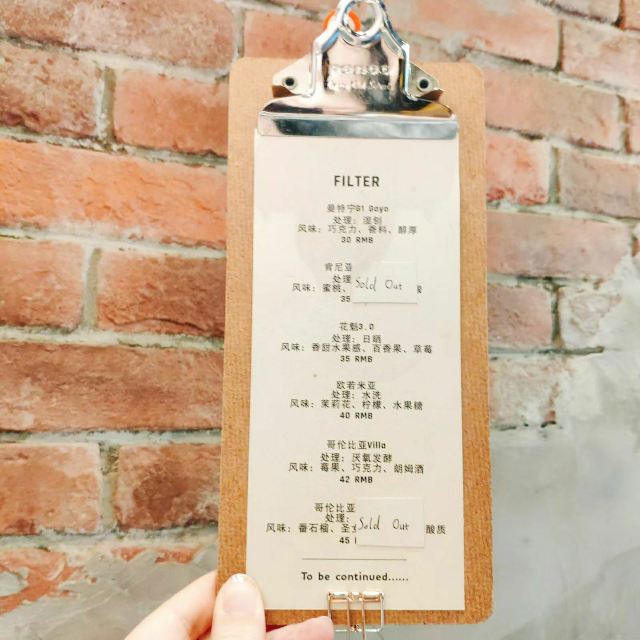 FILTER
曼特宁G1 Gayo
处理：湿刨
风味：巧克力、香料、醇厚
30 RMB
肯尼亚
处理
风味：蜜桃、
Sold Out
35
花魁3.0
处理：日晒
风味：香甜水果感、百香果、草莓
35 RMB
欧若米亚
处理：水洗
风味：茉莉花、柠檬、水果糖
40 RMB
哥伦比亚Villa
处理：厌氧发酵
风味：莓果、巧克力、朗姆酒
42 RMB
哥伦比亚
处理：
风味：番石榴、圣
Sold Out
酸质
45
To be continued......